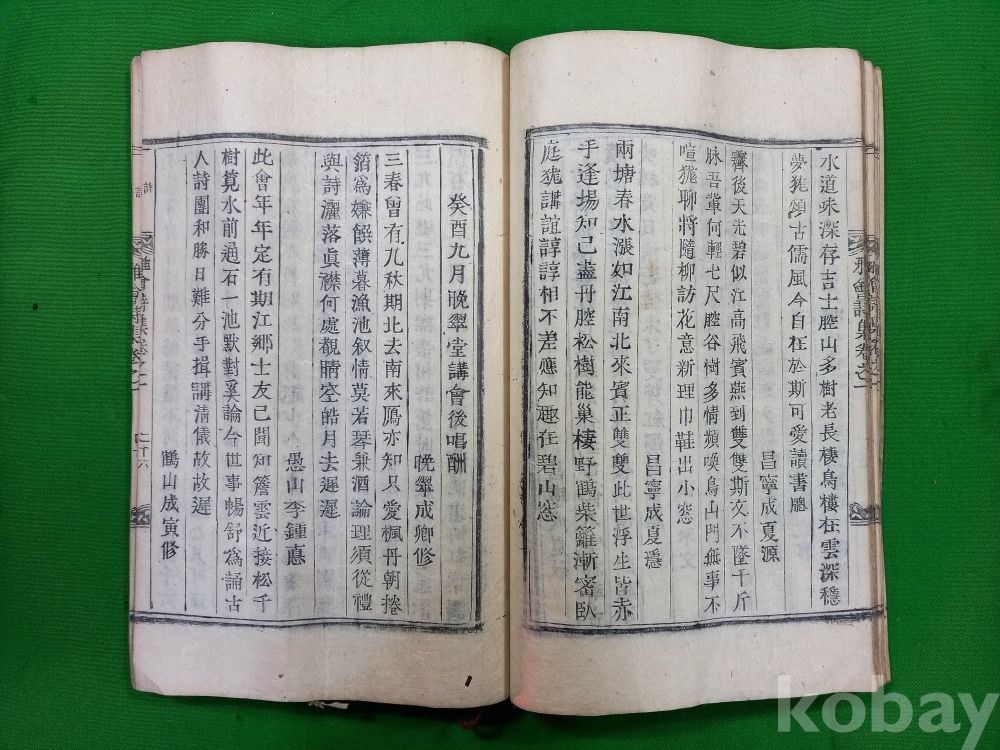 水道味深存吉士腔山多樹老長棲鳥樓在雲深穩
夢尨頌古儒風今自在於斯可愛讀書牕
昌寧成夏源
霽後天光碧似江高飛賓燕到雙雙斯文不墜千斤
脉吾軰何輕七尺腔谷樹多情頻喚鳥山門無事不
喧尨聊將隨柳訪花意新理巾鞋出小窓
昌寧成夏隱
兩塘春水漲如江南北來賓正雙雙此世浮生皆赤
手逢場知己盡丹腔松樹能巢棲野鶴柴籬漸密臥
庭尨講誼諄諄相不差應知趣在碧山窓
癸酉九月晩翠堂講會後唱酬
晩翠成卿修
三春曾有九秋期北去南來鴈亦知只愛楓丹朝捲
箔爲嫌饌薄暮漁池叙情莫若琴兼酒論理須從禮
與詩灑落眞襟何處覩晴空皓月去遲遲
愚山李鍾悳
此會年年定有期江鄕士友已聞知簷雲近接松千
樹筧水前通石一池默對奚論今世事暢舒爲誦古
人詩團和勝日難分手揖講清儀故故遲
鶴山成寅修
雅會詩集卷之一
kobay